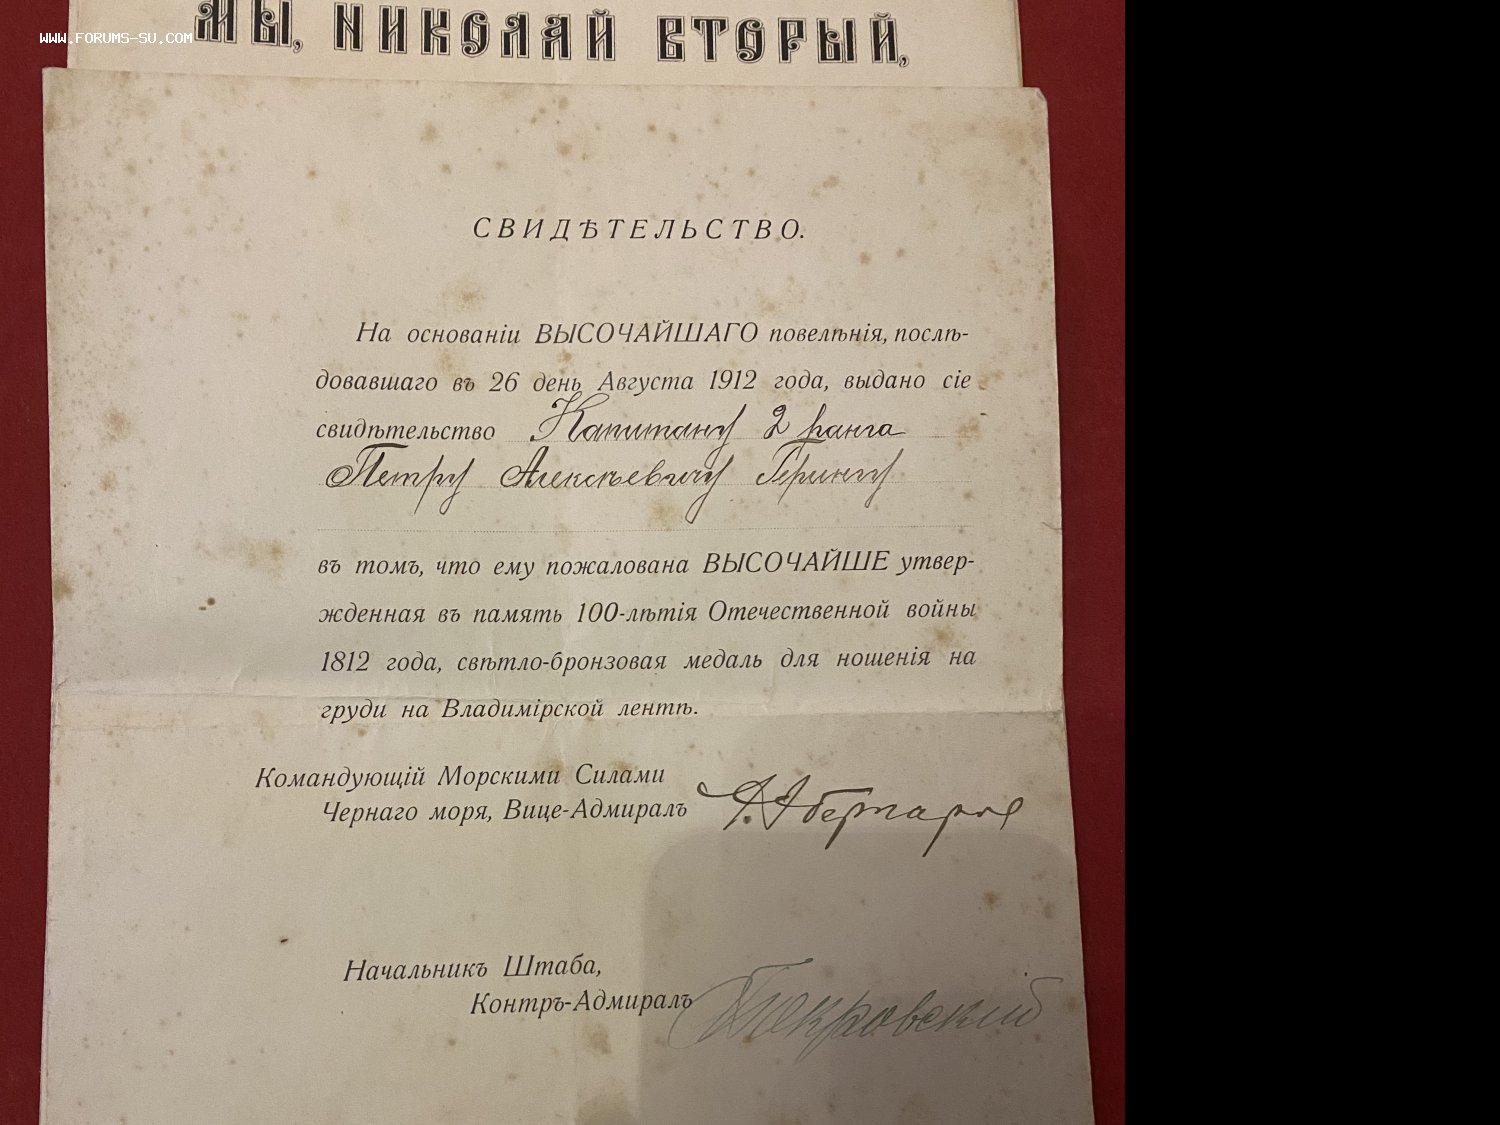 www.forums-su.com
МЫ, НИКОЛАЙ ВТОРЫЙ,
СВИДѢТЕЛЬСТВО.
На основаніи ВЫСОЧАЙШАГО повелѣнія, послѣ-
довавшаго въ 26 день Августа 1912 года, выдано сіе
свидѣтельство Капитану 2 ранга
Петру Алексѣевичу Герингу
въ томъ, что ему пожалована ВЫСОЧАЙШЕ утвер-
жденная въ память 100-лѣтія Отечественной войны
1812 года, свѣтло-бронзовая медаль для ношенія на
груди на Владимірской лентѣ.
Командующій Морскими Силами
Чернаго моря, Вице-Адмиралъ
Начальникъ Штаба,
Контръ-Адмиралъ Покровскій